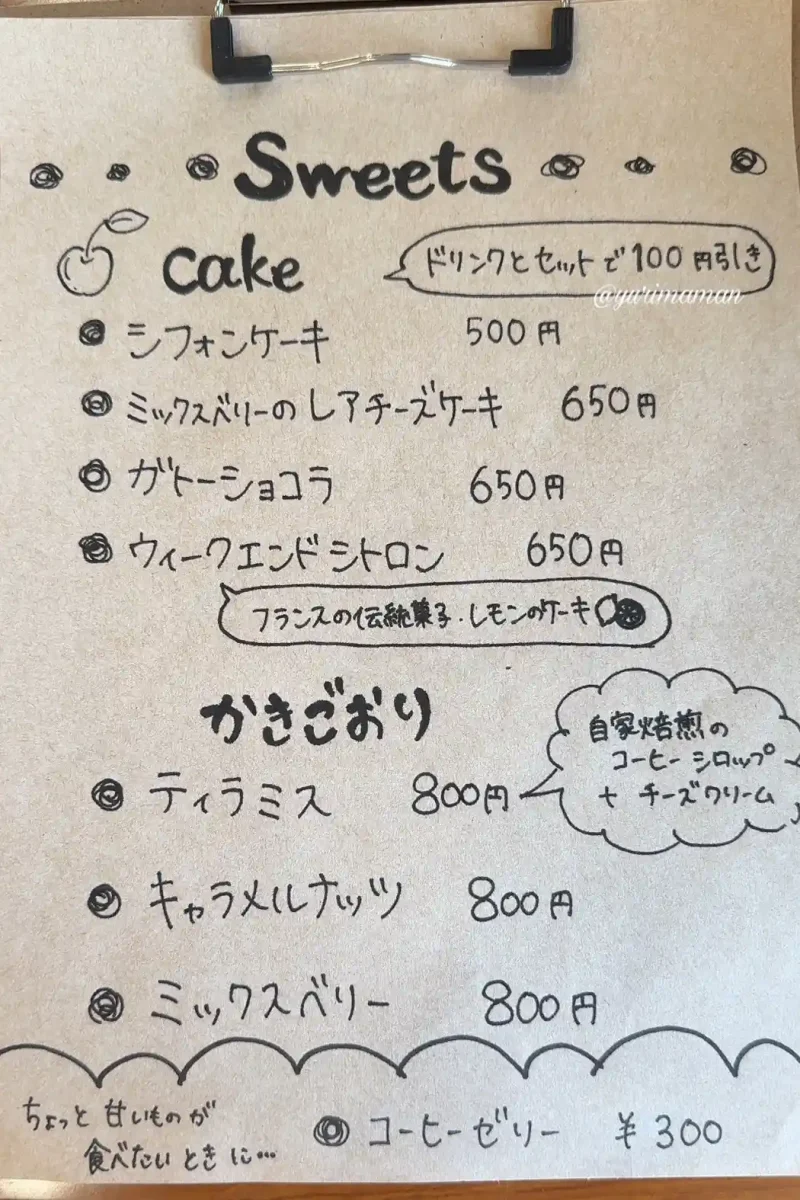 Sweets
cake
ドリンクとセットで100円引き
@yurimaman
シフォンケーキ 500円
ミックスベリーのレアチーズケーキ 650円
ガトーショコラ 650円
ウィークエンドシトロン 650円
フランスの伝統菓子・レモンのケーキ
かきごおり
自家焙煎の
コーヒーシロップ
+ チーズクリーム
ティラミス 800円
キャラメルナッツ 800円
ミックスベリー 800円
ちょっと甘いものが
食べたいときに…
コーヒーゼリー ¥300